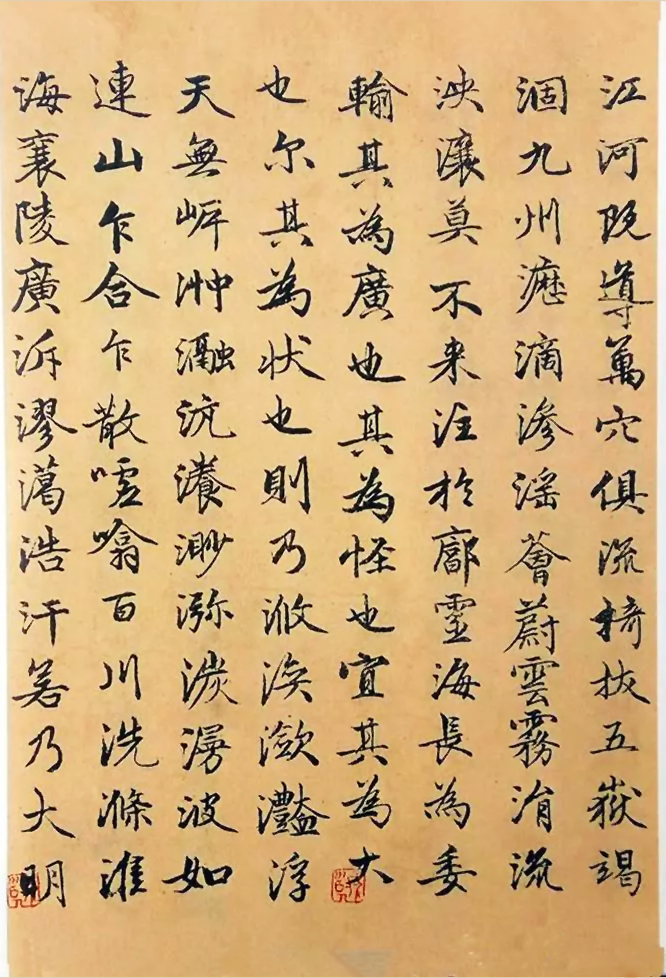 江河既導萬穴俱流掎拔五嶽竭
涸九州瀝滴滲淫薈蔚雲霧涓流
泱瀼莫不来注於廓靈海長為委
輸其為廣也其為怪也宜其為大
也尔其為状也則乃浟湙瀲灩浮
天無岸沖瀜沆瀁渺㳽湠漫波如
連山乍合乍散噓噏百川洗滌淮
海襄陵廣泝漻㵧浩汗若乃大明